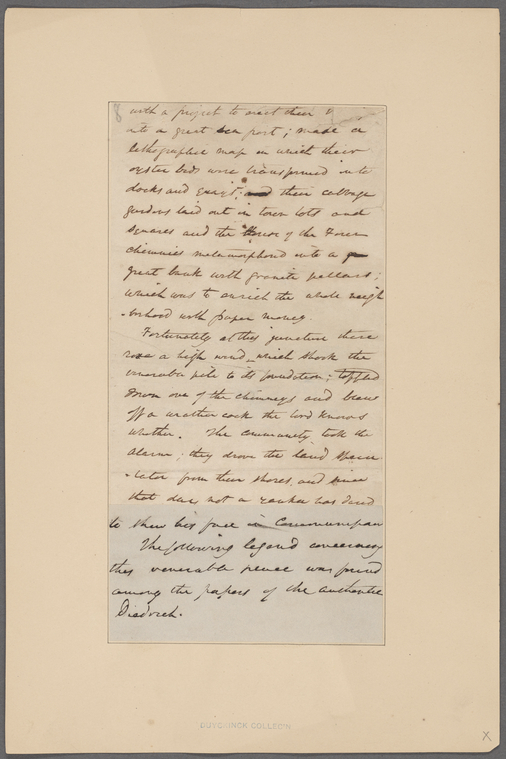 8 with a project to erect their
into a great sea port; made a
lithographic map in which their
oyster beds were transformed into
docks and quays; and their cabbage
gardens laid out in town lots and
squares and the House of the Four
chimnies metamorphosed into a
great bank with granite pillars;
which was to enrich the whole neigh
-borhood with paper money.
Fortunately at this juncture there
rose a high wind, which shook the
venerable pile to its foundation; toppled
down one of the chimneys and blew
off a weather cock the lord knows
whither. The community took the
alarm; they drove the land specu
-lator from their shores, and since
that day not a yankee has dared
to shew his face in Communipaw
The following legend concerning
this venerable was found
among the papers of the authentic
Diedrich.
DUYCKINCK COLLECT'N
X